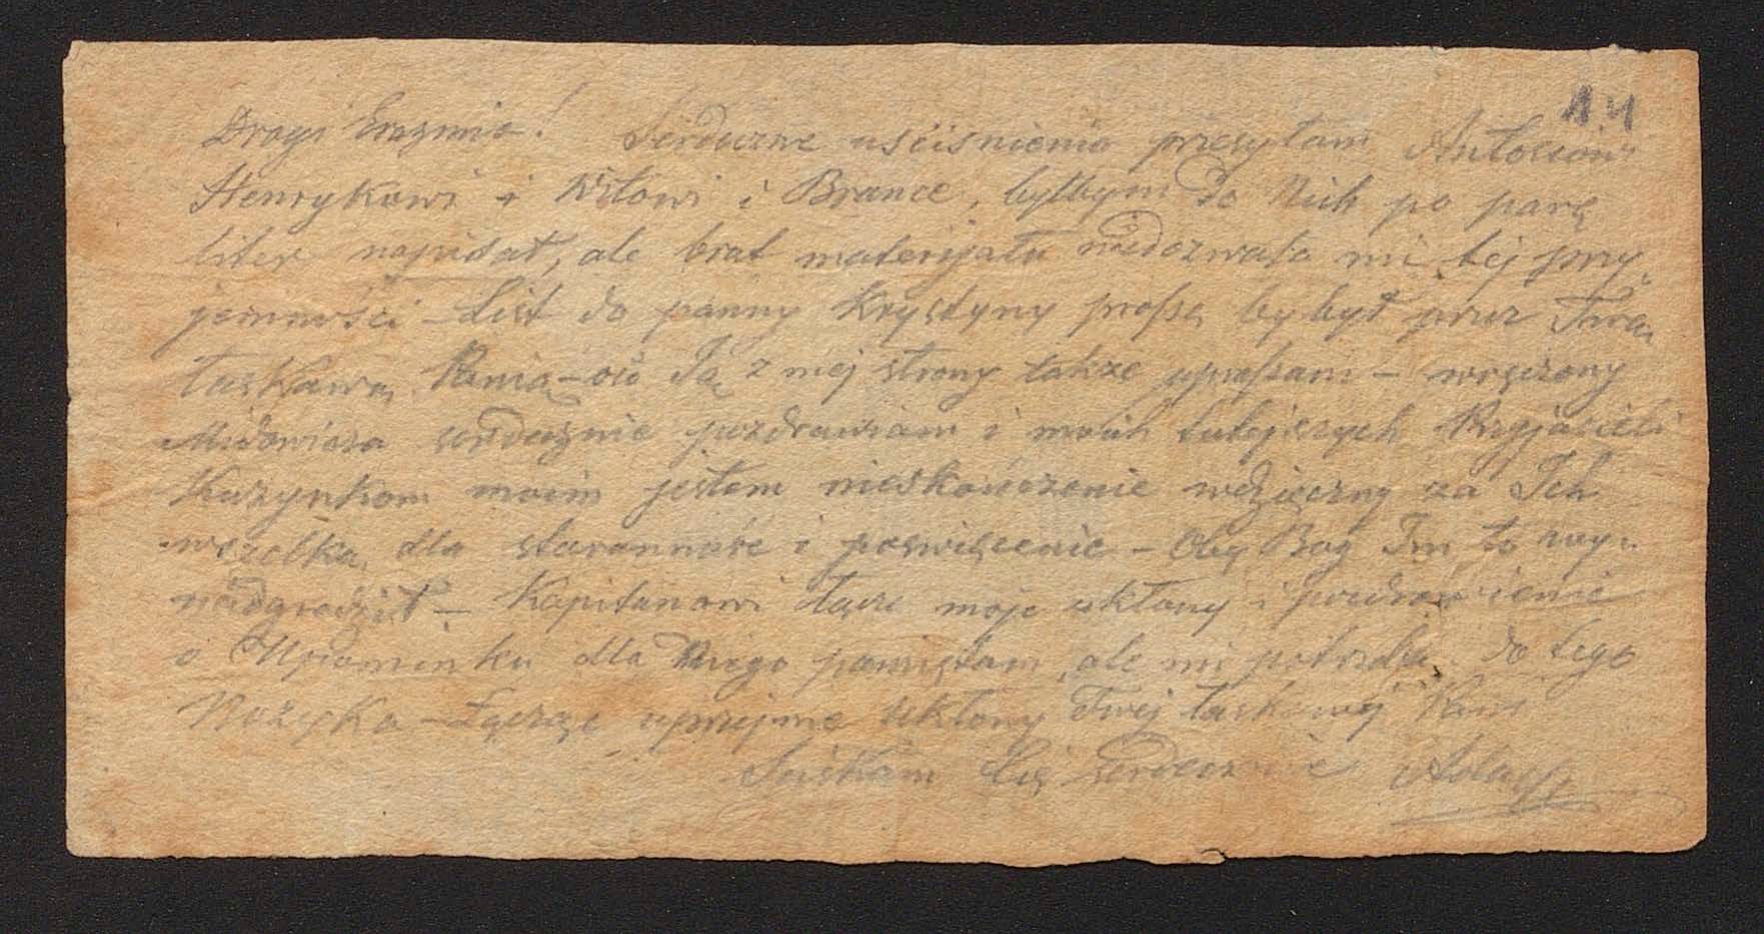 14
Drogi Erazmie! Serdeczne uściśnienia przesyłam Antosiowi
Henrykowi i Witowi i Brance, byłbym do Nich po parę
liter napisał, ale brak materyjału niedozwala mi tej przy-
jemności – List do panny Krystyny proszę by był przez Twą
łaskawą Panią – oco Ją z mej strony także upraszam – wręczony
serdecznie pozdrawiam i moich tutejszych Przyjacieli
Kuzynkom moim jestem nieskończenie wdzięczny za Ich
wszelką dla starannośc i poświęcenie – Oby Bog Im to wy-
nadgrodził – Kapitanowi łącze moje ukłony i pozdrowienie
o Upominku dla Niego pamiętam, ale mi potrzeba do tego
Nożyka – Łączę uprzejme ukłony Twej łaskawej Pani
Ściskam Cię serdecznie Adolf